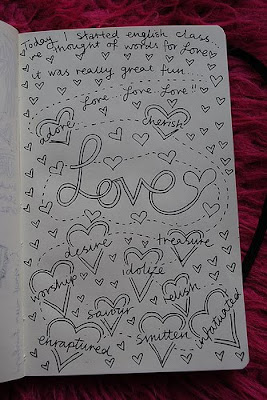 Today I started english class...
we thought of words for Love
it was really great fun...
Love... Love... Love!!
adore
cherish
Love
desire
treasure
idolize
worship
relish
savour
infatuated
enraptured
smitten